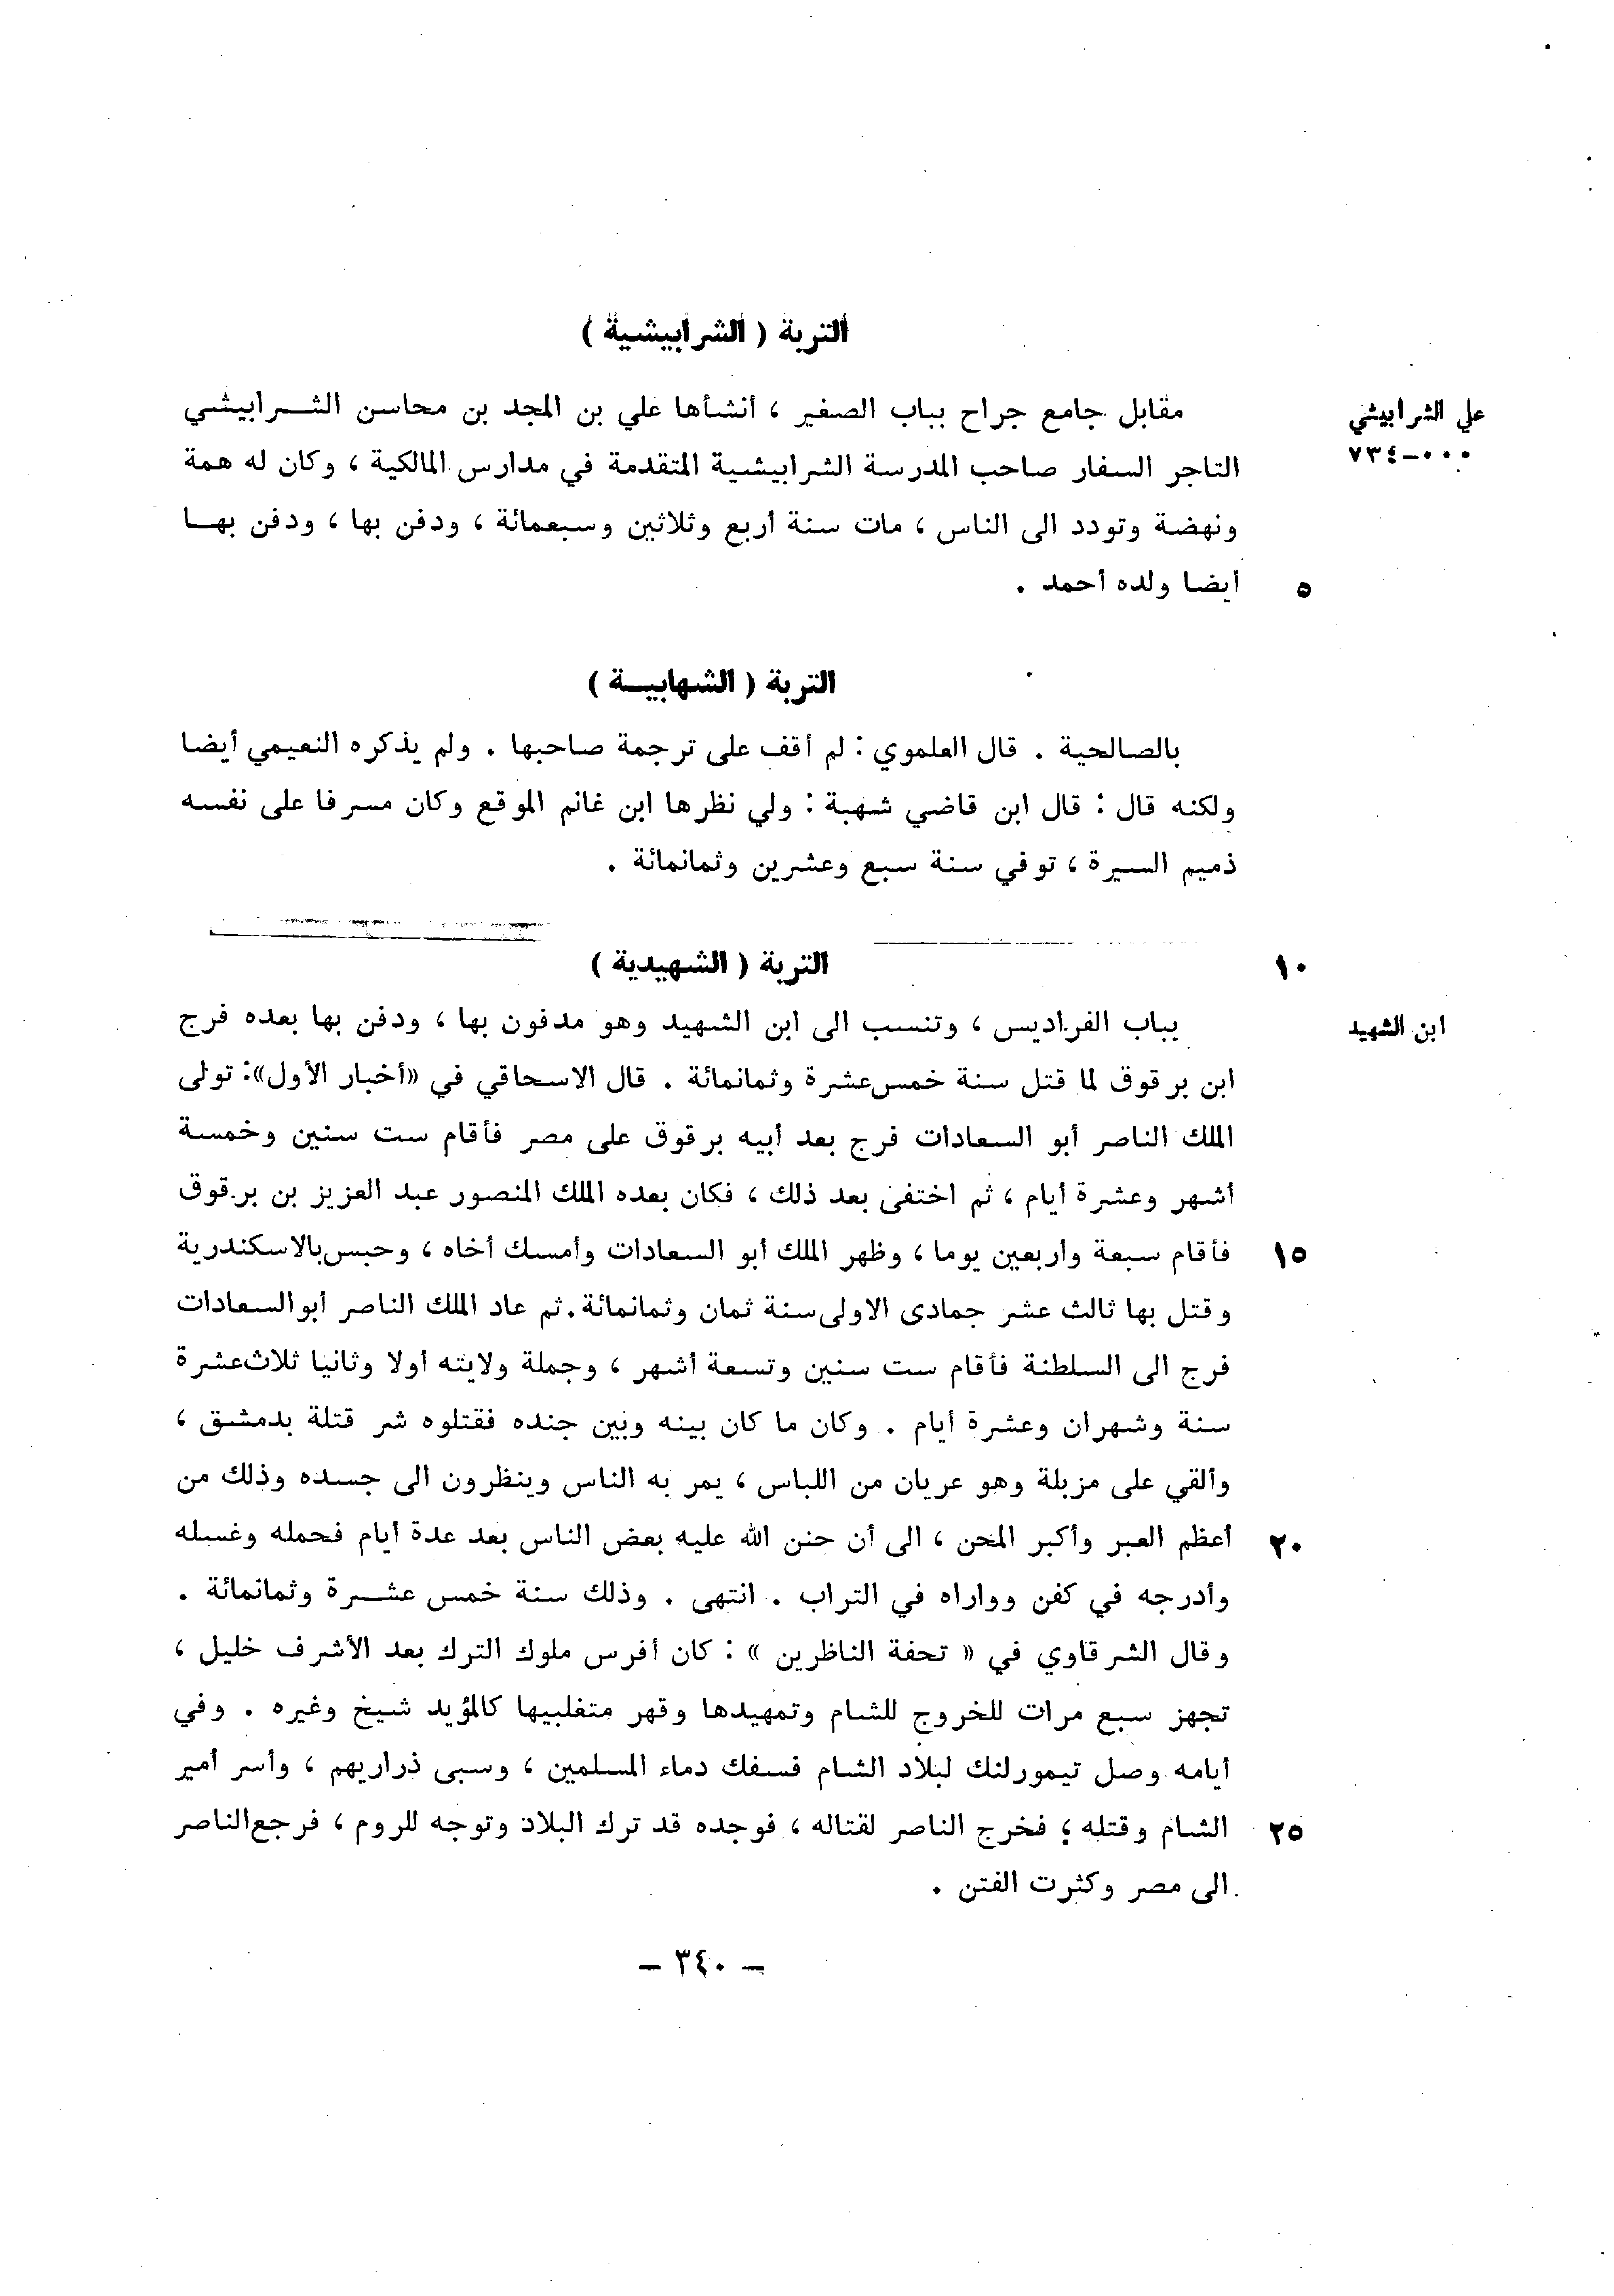 التربة ( الشرابيشية )
علي الشرابيشي
٠٠٠-٧٣٤
مقابل جامع جراح بباب الصغير ، أنشأها علي بن المجد بن محاسن الشرابيشي
التاجر السفار صاحب المدرسة الشرابيشية المتقدمة في مدارس المالكية ، وكان له همة
ونهضة وتودد الى الناس ، مات سنة أربع وثلاثين وسبعمائة ، ودفن بها ، ودفن بها
٥ أيضا ولده أحمد .
التربة ( الشهابية )
بالصالحية . قال العلموي : لم أقف على ترجمة صاحبها . ولم يذكره النعيمي أيضا
ولكنه قال : قال ابن قاضي شهبة : ولي نظرها ابن غانم الموقع وكان مسرفا على نفسه
ذميم السيرة ، توفي سنة سبع وعشرين وثمانمائة .
١٠ التربة ( الشهيدية )
ابن الشهيد
بباب الفراديس ، وتنسب الى ابن الشهيد وهو مدفون بها ، ودفن بها بعده فرج
ابن برقوق لما قتل سنة خمس عشرة وثمانمائة . قال الاسحاقي في «أخبار الأول»: تولى
الملك الناصر أبو السعادات فرج بعد أبيه برقوق على مصر فأقام ست سنين وخمسة
أشهر وعشرة أيام ، ثم اختفى بعد ذلك ، فكان بعده الملك المنصور عبد العزيز بن برقوق
١٥ فأقام سبعة وأربعين يوما ، وظهر الملك أبو السعادات وأمسك أخاه ، وحبس بالاسكندرية
وقتل بها ثالث عشر جمادى الاولى سنة ثمان وثمانمائة . ثم عاد الملك الناصر أبو السعادات
فرج الى السلطنة فأقام ست سنين وتسعة أشهر ، وجملة ولايته أولا وثانيا ثلاث عشرة
سنة وشهران وعشرة أيام . وكان ما كان بينه وبين جنده فقتلوه شر قتلة بدمشق ،
وألقي على مزبلة وهو عريان من اللباس ، يمر به الناس وينظرون الى جسده وذلك من
٢٠ أعظم العبر وأكبر المحن ، الى أن حنن الله عليه بعض الناس بعد عدة أيام فحمله وغسله
وأدرجه في كفن وواراه في التراب . انتهى . وذلك سنة خمس عشرة وثمانمائة .
وقال الشرقاوي في « تحفة الناظرين » : كان أفرس ملوك الترك بعد الأشرف خليل ،
تجهز سبع مرات للخروج للشام وتمهيدها وقهر متغلبيها كالمؤيد شيخ وغيره . وفي
أيامه وصل تيمورلنك لبلاد الشام فسفك دماء المسلمين ، وسبى ذراريهم ، وأسر أمير
٢٥ الشام وقتله ؛ فخرج الناصر لقتاله ، فوجده قد ترك البلاد وتوجه للروم ، فرجع الناصر
الى مصر وكثرت الفتن .
- ٣٤٠ -